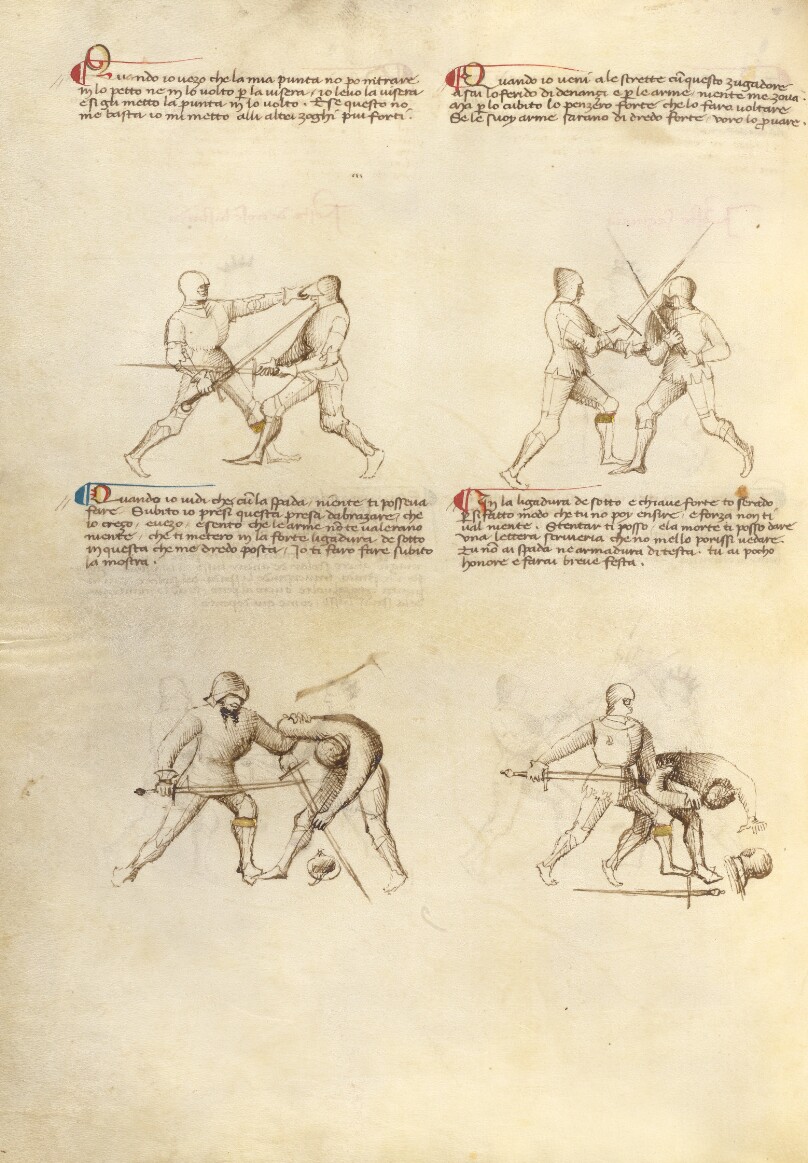 Quando io vezo che la mia punta no po intrare
in lo petto ne in lo volto per la visera, io levo la visera
e si gli metto la punta in lo volto. E se questo no
me basta io mi metto alli altri zoghi piu forti.
Quando io veni a le strette cum questo zugadore
Asai lo ferido di denanzi e per le arme niente me zova.
Ma per lo cubito lo penzero forte che lo faro voltare
Se le suoy arme sarano di dredo forte, voro lo provare.
Quando io vidi che cum la spada niente ti posseva
fare. Subito io presi questa presa d'abrazare, che
io crezo, e vezo, e sento che le arme non te valerano
niente, che ti metero in la forte ligadura de sotto
in questa che me dredo posta, Io ti faro fare subito
la mostra.
In la ligadura de sotto e chiave forte to serado
per si fatto modo che tu no poy ensire, e forza non ti
val niente. Stentar ti posso, e la morte ti posso dare
una lettera scriveria che no mel lo porissi vedare.
Tu non ai spada ne armadura di testa. tu ai pocho
honore e farai breve festa.